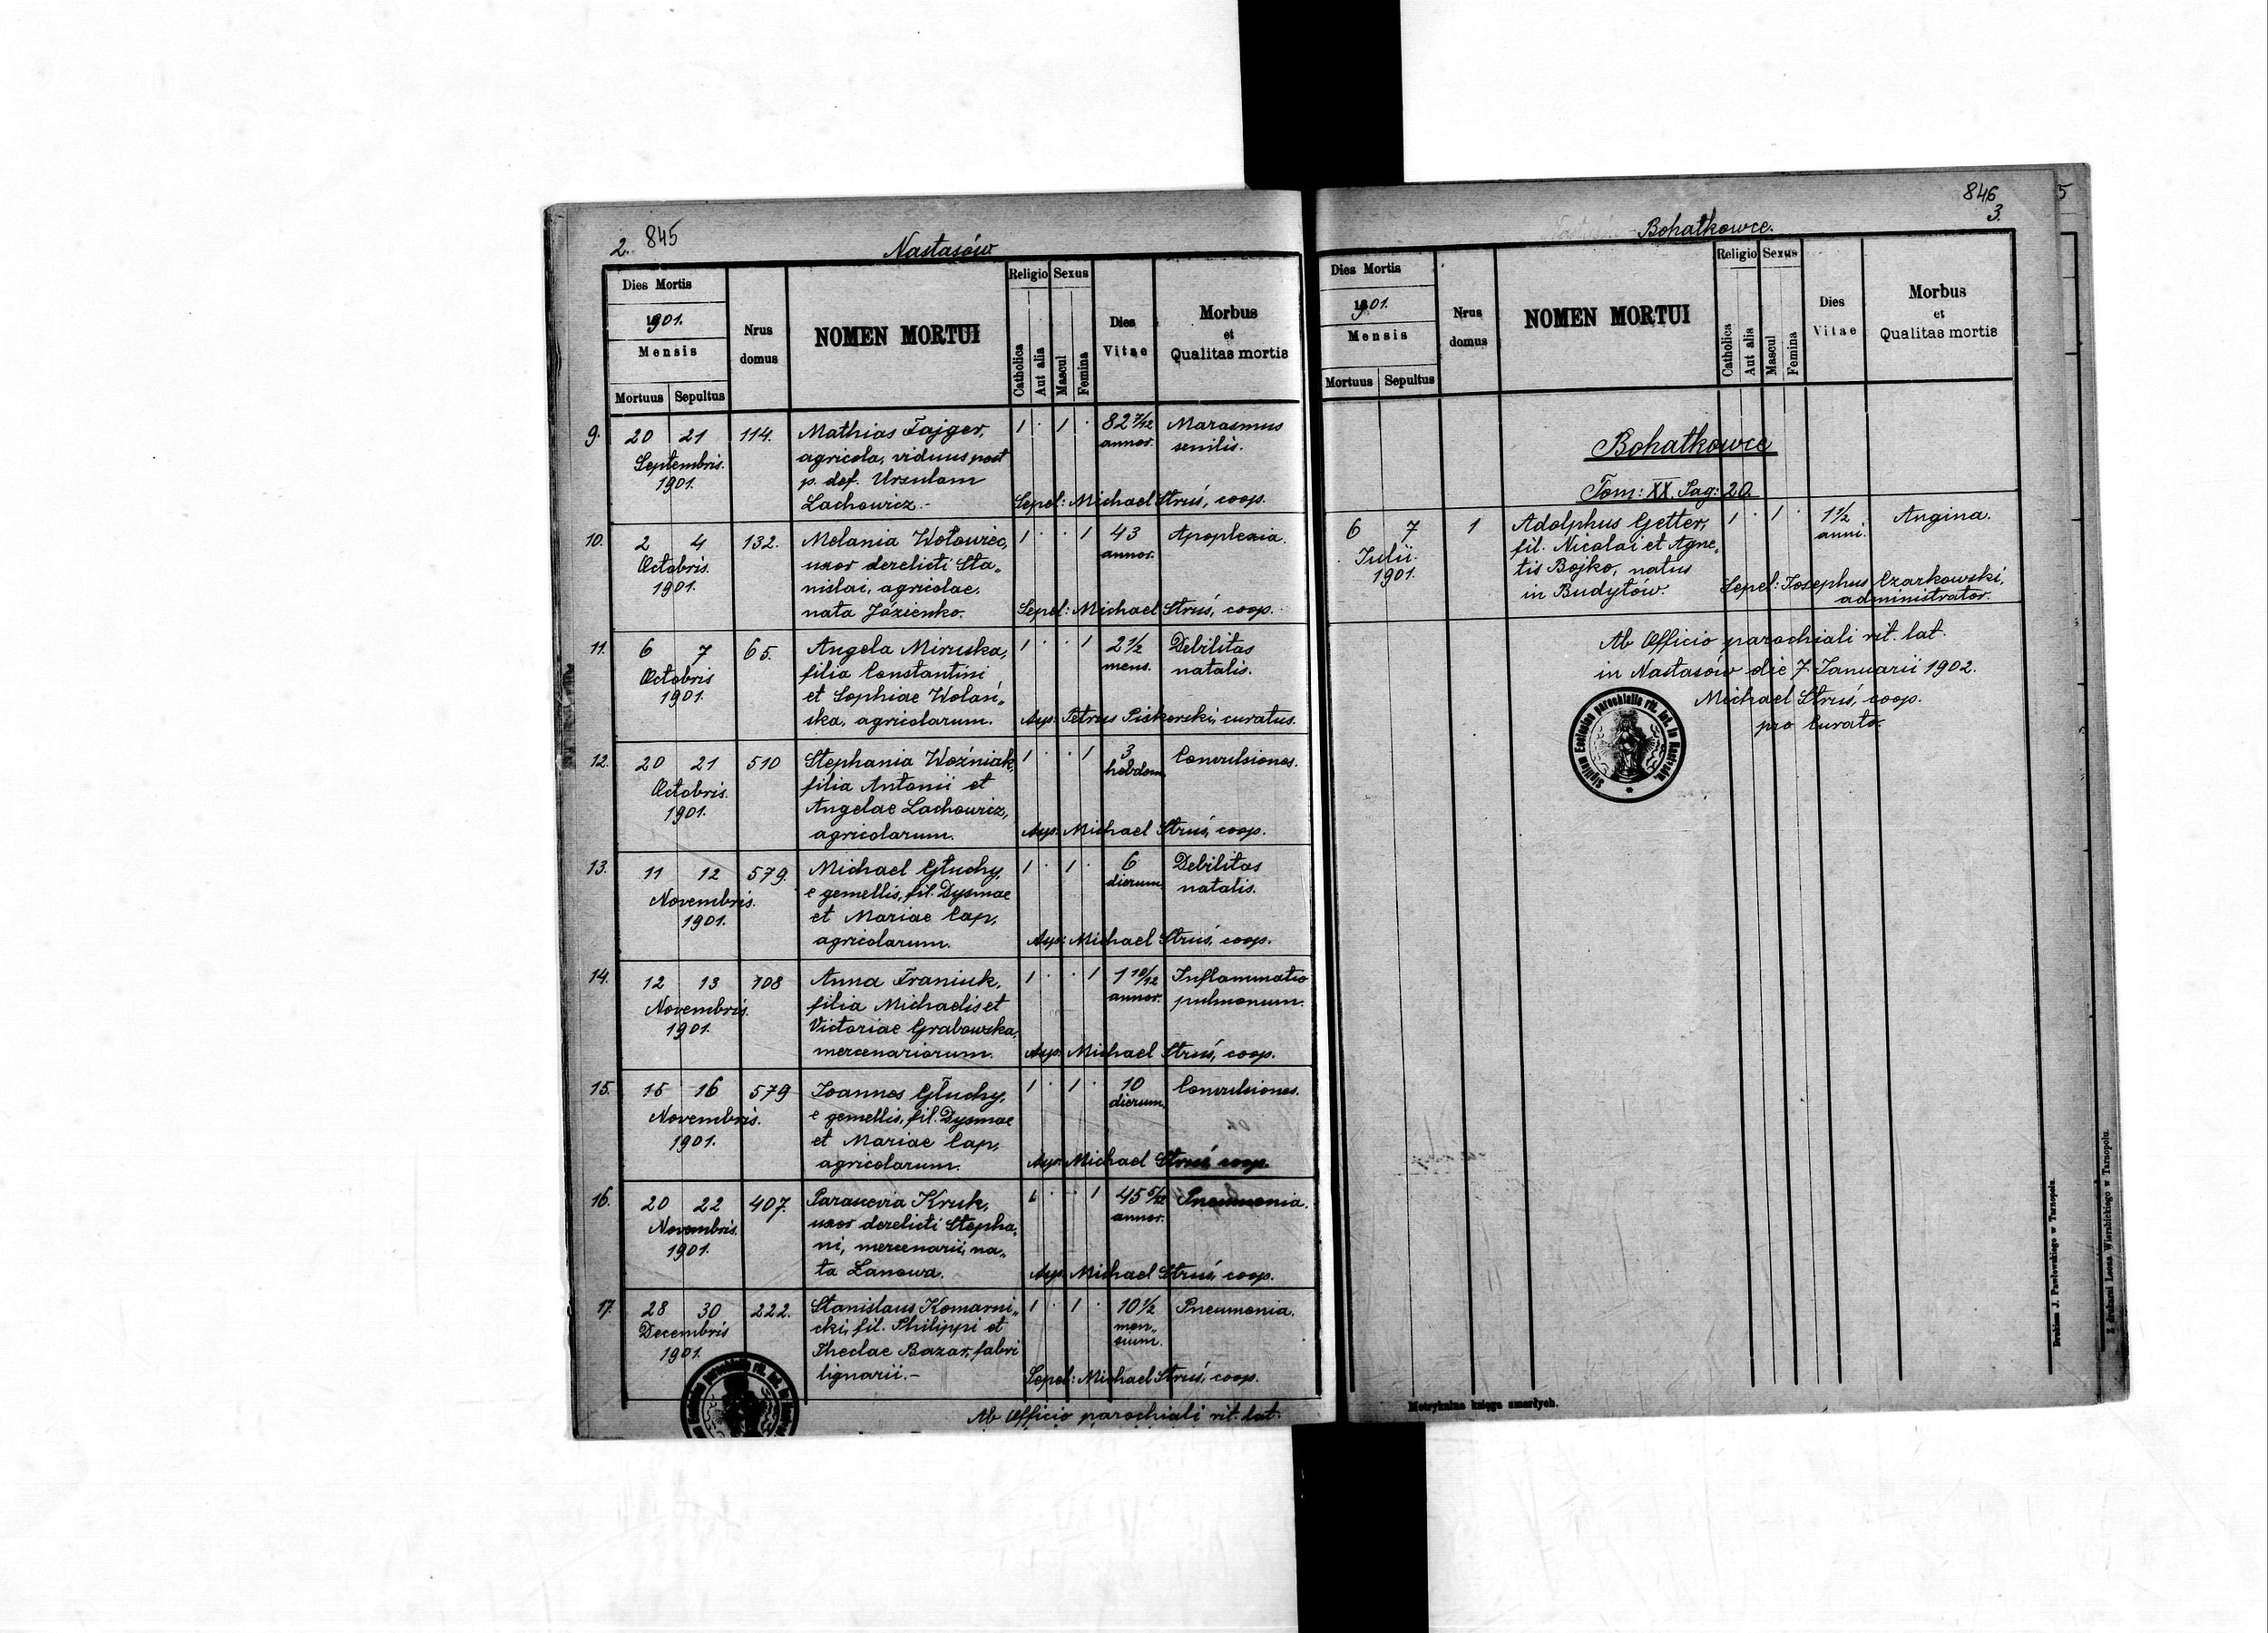 2. 845
Nastasów
Dies Mortis
1901.
Mensis
Mortuus Sepultus
Nrus
domus
NOMEN MORTUI
Religio Sexus
Catholica
Aut alia
Mascul
Femina
Dies
Vitae
Morbus
et
Qualitas mortis
9. 20 21 114. Mathias Fajger, 1 · 1 · 82 7/12 Marasmus
Septembris. agricola, viduus post annor. senilis.
1901. p. def. Ursulam
Lachowicz.- Sepel: Michael Struś, coop.
10. 2 4 132. Melania Wołowiec, 1 · · 1 43 Apoplexia.
Octobris. uxor derelicti Sta„ annor.
1901. nislai, agricolae.
nata Józienko. Sepel: Michael Struś, coop.
11. 6 7 65. Angela Miruska, 1 · · 1 2 1/2 Debilitas
Octobris filia Constantini mens. natalis.
1901. et Sophiae Wolań„
ska, agricolarum. Asp. Petrus Piskorski, curatus.
12. 20 21 510 Stephania Woźniak, 1 · · 1 3 Convulsiones.
Octobris. filia Antonii et hebdom.
1901. Angelae Lachowicz,
agricolarum. Asp. Michael Struś, coop.
13. 11 12 579. Michael Głuchy, 1 · 1 · 6 Debilitas
Novembris. e gemellis, fil. Dysmae dierum natalis.
1901. et Mariae Cap,
agricolarum. Asp: Michael Struś, coop.
14. 12 13 708 Anna Franiuk, 1 · · 1 1 10/12 Inflammatio
Novembris. filia Michaelis et annor. pulmonum.
1901. Victoriae Grabowska,
mercenariorum. Asp. Michael Struś, coop.
15. 15 16 579 Joannes Głuchy, 1 · 1 · 10 Convulsiones.
Novembris. e gemellis, fil. Dysmae dierum.
1901. et Mariae Cap,
agricolarum. Asp. Michael Struś coop.
16. 20 22 407. Parascevia Kruk, 1 · · 1 45 6/12 Pneumonia.
Novembris. uxor derelicti Stepha„ annor.
1901. ni, mercenarii, na„
ta Lanowa. Asp. Michael Struś, coop.
17. 28 30 222. Stanislaus Komarni„ 1 · 1 · 10 1/2 Pneumonia.
Decembris cki, fil. Philippi et men„
1901. Theclae Bazar, fabri sium.
lignarii.- Sepel: Michael Struś, coop.
Ab Officio parochiali rit. lat.
846
3.
Bohatkowce.
Dies Mortis
1901.
Mensis
Mortuus Sepultus
Nrus
domus
NOMEN MORTUI
Religio Sexus
Catholica
Aut alia
Mascul
Femina
Dies
Vitae
Morbus
et
Qualitas mortis
Bohatkowce
Tom: XX. Pag: 20.
6 7 1 Adolphus Getter, 1 · 1 · 1 1/2 Angina.
Julii. fil. Nicolai et Agne„ anni.
1901. tis Bojko, natus
in Budytów. Sepel: Josephus Czarkowski,
administrator.
Ab Officio parochiali rit. lat.
in Nastasów die 7. Januarii 1902.
Michael Struś, coop.
pro Curato.
Sigillum Ecclesiae parochialis rit. lat. in Nastasów.
Metrykalna księga umarłych.
Drukiem J. Pawłowskiego w Tarnopolu.
Z drukarni Leona Wierzbickiego w Tarnopolu.
5